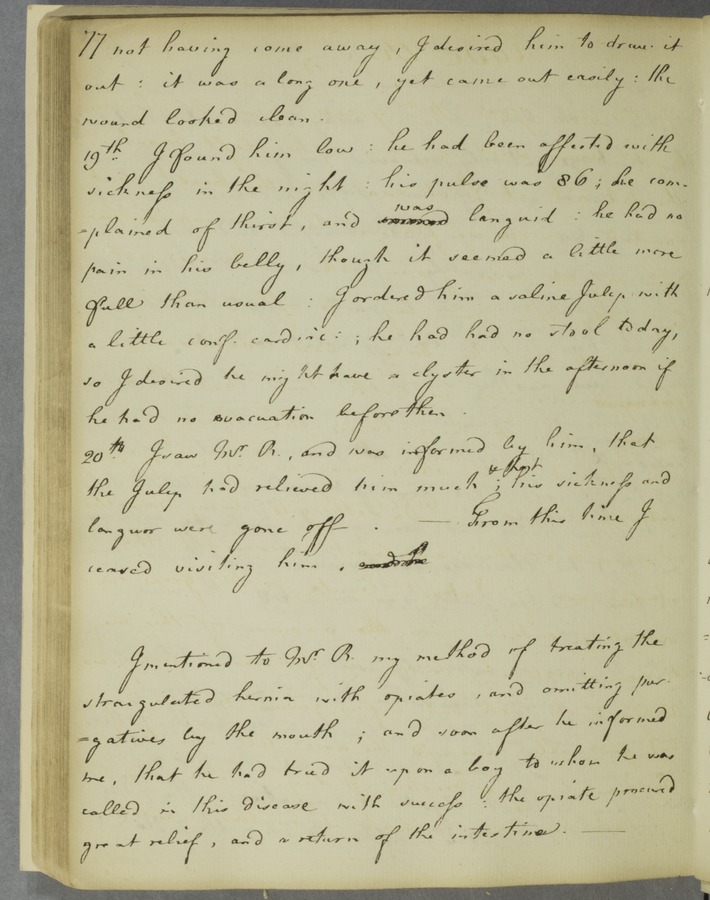 77 not having come away, I desired him to draw it
out : it was a long one, yet came out easily : the
wound looked clean.
19th. I found him low : he had been affected with
sickness in the night : his pulse was 86 ; he com-
=plained of thirst, and was languid : he had no
pain in his belly, though it seemed a little more
full than usual : I ordered him a saline Julep with
a little conf. cardiac: ; he had had no stool today,
so I desired he might have a clyster in the afternoon if
he had no evacuation before then.
20th. I saw Mr. R., and was informed by him, that
the Julep had relieved him much ; & that his sickness and
languor were gone off. — From this time I
ceased visiting him.
I mentioned to Mr. R. my method of treating the
strangulated hernia with opiates, and omitting pur-
=gatives by the mouth ; and soon after he informed
me, that he had tried it upon a boy to whom he was
called in this disease with success : the opiate procured
great relief, and a return of the intestine. —